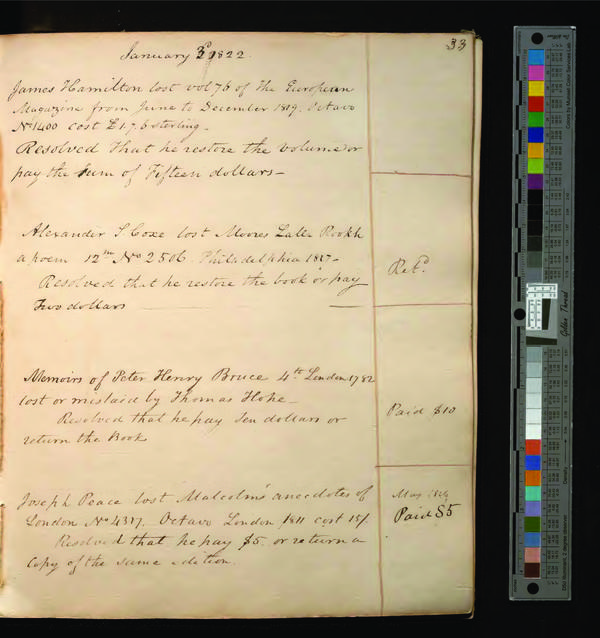 33
January 3d 1822.
James Hamilton lost vol 76 of the European
Magazine from June to December 1819. Octavo
No 1400 cost £1.7.6 sterling.
Resolved That he restore the volume or
pay the sum of Fifteen dollars—
Alexander S. Coxe lost Moores Lalla Rookh
a poem 12mo No 2506. Philadelphia 1817—
Resolved that he restore the book or pay
Two dollars
Retd.
Memoirs of Peter Henry Bruce 4th London 1782
lost or mislaid by Thomas Hoke—
Resolved that he pay ten dollars or
return the Book
Paid $10
Joseph Peace lost Malcolm's anecdotes of
London No 4317. Octavo London 1811 cost 15/.
Resolved that he pay $5. or return a
Copy of the same edition.
May 1824
Paid $5
Golden Thread